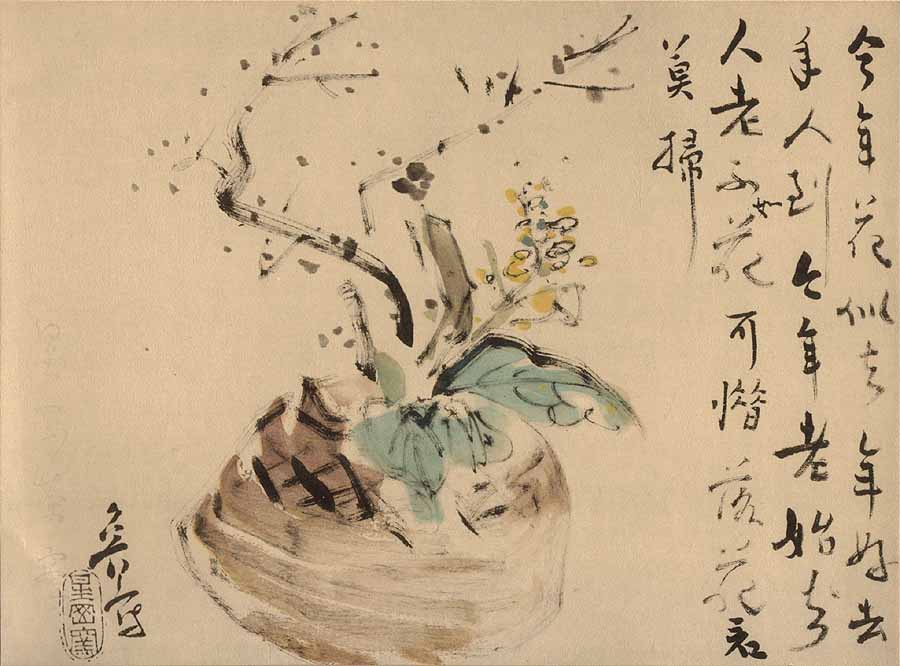 今年花似去年好去
年人到今年老始知
人老不如花可惜落花君
莫掃
写
星岡窯